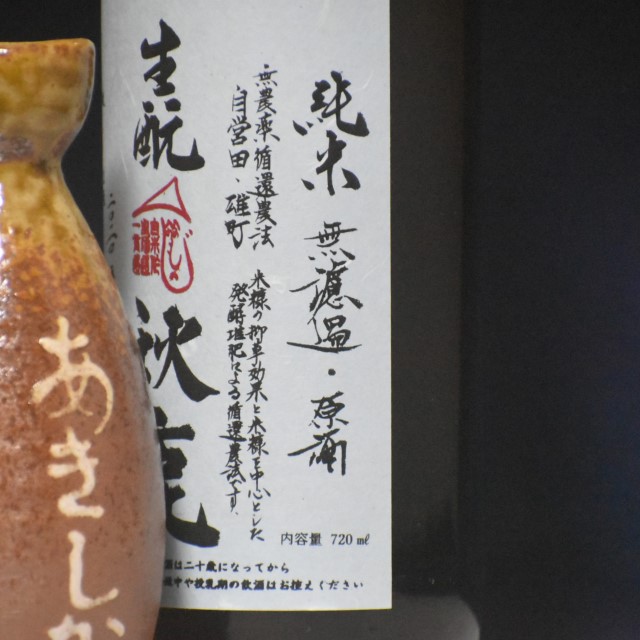 純米 無濾過・原酒
無農薬循環農法
自営田 雄町
米糠の抑草効果と米糠を中心とした
発酵堆肥による循環農法です。
生酛
秋鹿
内容量 720㎖
酒は二十歳になってから
中や授乳期の飲酒はお控えください
あきしか